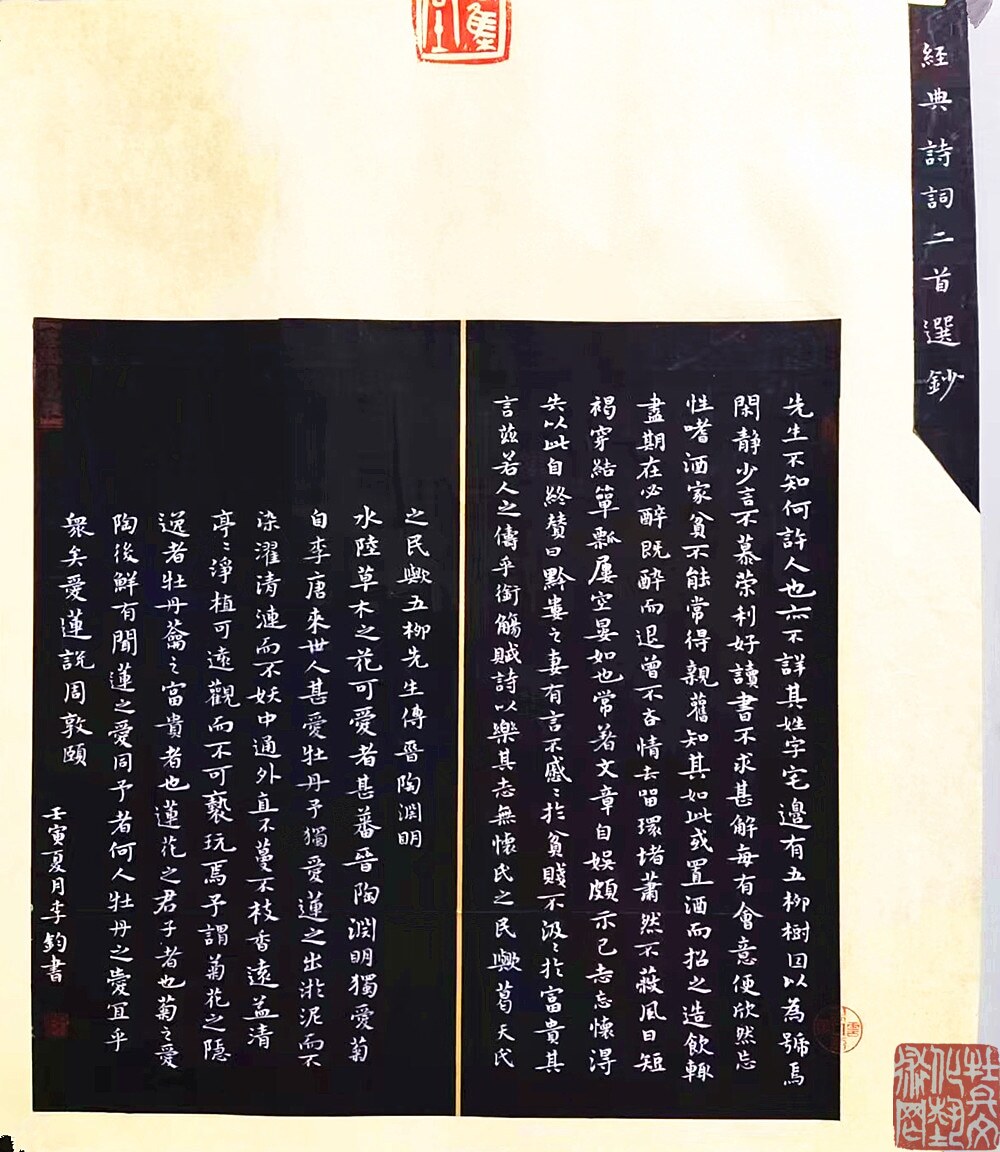 經典詩詞二首選鈔
先生不知何許人也亦不詳其姓字宅邊有五柳樹因以為號焉
閑靜少言不慕荣利好讀書不求甚解每有會意便欣然忘
性嗜酒家貧不能常得親舊知其如此或置酒而招之造飲輒
盡期在必醉既醉而退曾不吝情去留環堵蕭然不蔽風日短
褐穿結簞瓢屢空晏如也常著文章自娛頗示己志忘懷得
失以此自終贊曰黔婁之妻有言不慼〻於貧賤不汲〻於富貴其
言茲若人之儔乎銜觴賦詩以樂其志無懷氏之民歟葛天氏
之民歟五柳先生傳晉陶淵明
水陸草木之花可愛者甚蕃晉陶淵明獨愛菊
自李唐來世人甚愛牡丹予獨愛蓮之出淤泥而不
染濯清漣而不妖中通外直不蔓不枝香遠益清
亭〻淨植可遠觀而不可褻玩焉予謂菊花之隱
逸者牡丹之富貴者也蓮花之君子者也菊之愛
陶後鮮有聞蓮之愛同予者何人牡丹之愛宜乎
眾矣愛蓮說周敦頤
壬寅夏月李鈞書
牡丹文化藝術網